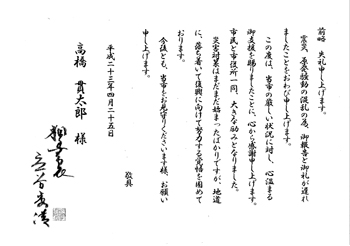 前略 失礼申し上げます。
震災、原発騒動の混乱の為、御報告と御礼が遅れ
ましたことをおわび申し上げます。
この度は、当市の厳しい状況に対し、心温まる
御支援を賜りましたことに、心から感謝申し上げます。
市民と市役所一同、大きな励みとなりました。
災害対策はまだまだ始まったばかりですが、地道
に、落ち着いて復興に向けて努力する覚悟を固めて
おります。
今後とも、当市をお見守りくださいます様、お願い
申し上げます。
敬具
平成二十三年四月二十五日
高橋 貫太郎 様
相馬市長
立谷秀清